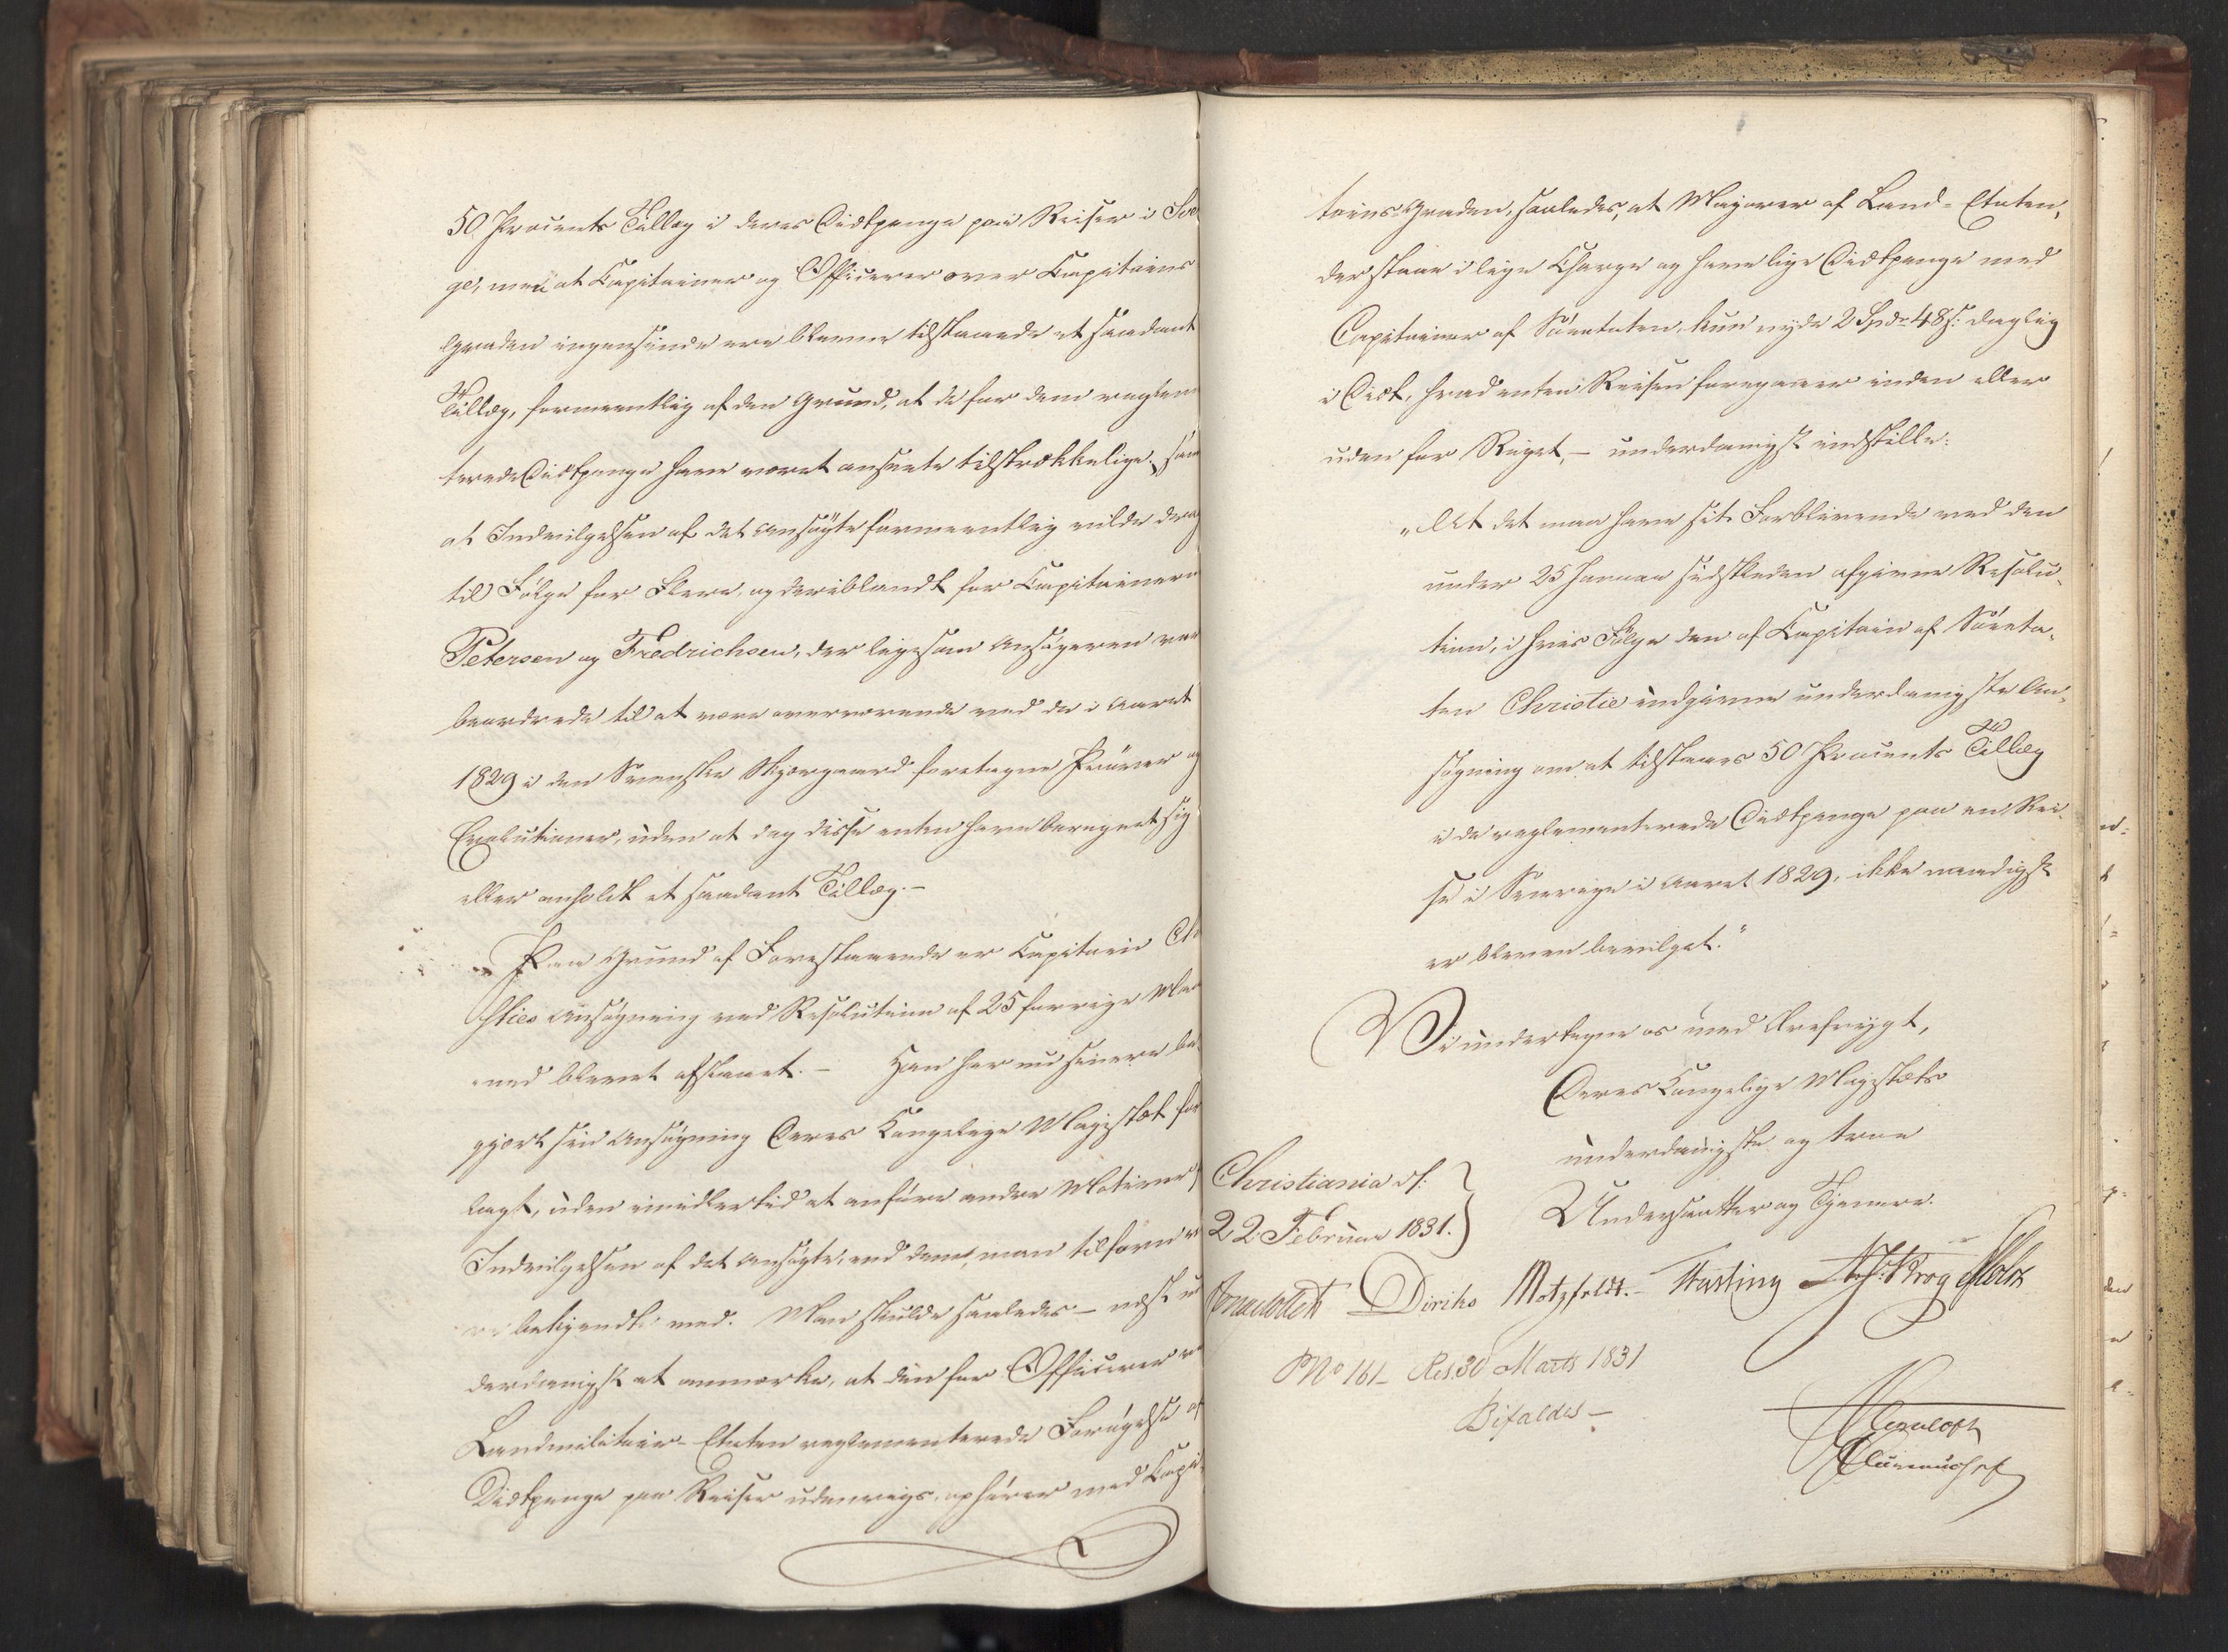 50 Procents Tillæg i deres Diætpenge paa Reiser i Sve
ge, men at Capitainer og Officerer over Capitains
Graden ingensinde ere blevne tilstaaede et saadant
Tillæg, formeentlig af den Grund, at de for dem reglem
terede Diætpenge have været ansete tilstrækkelige,
at Indvilgelsen af det Ansøgte formeentlig vilde drag
til Følge for Flere, og deriblandt for Capitainern
Petersen og Fredrichsen, der ligesom Ansøgeren var
beordrede til at være overværende ved de i Aaret
1829 i den Svenske Skjærgaard foretagne Prøver og
Evolutioner, uden at dog disse enten have beregnet sig
eller anholdt et saadant Tillæg.-
Paa Grund af Forestaaende er Capitain Ch
sties Ansøgning ved Resolution af 25 forrige Maa
ned blevet afslaaet.- Han har nu senere be-
gjært sin Ansøgning Deres Kongelige Majestæt fore
lagt, uden imidlertid at anføre andre Motiver
Indvilgelsen af det Ansøgte, end dem, man tilforn
bekjendt med. Man skulde saaledes - næst u
derdanigst at anmærke, at den for Officerer
Landmilitair-Etaten reglementerede Forøgelse af
Diætpenge paa Reiser udenrigs, ophører med Capi-
tains-Graden, saaledes, at Majorer af Land-Etaten,
der staae i lige Charge og have lige Diætpenge med
Capitainer af Søeetaten, kun nyde 2 Spd. 48 s: daglig
i Diæt, hvad enten Reisen foregaaer inden eller
uden for Riget,- underdanigst indstille:
"At det maa have sit Forblivende ved den
under 25 Januar sidstleden afgivne Resolu-
tion, i hvis Følge den af Capitain af Søeeta-
ten Christie indgivne underdanigste An-
søgning om at tilstaaes 50 Procents Tillæg
i de reglementerede Diætpenge paa en Rei-
se i Sverige i Aaret 1829, ikke naadigst
er bleven bevilget."
Vi undertegne os med Ærefrygt,
Deres Kongelige Majestæts
underdanigste og troe
Undersaatter og Tjenere.
Christiania d:
22. Februar 1831.
Diriks Motzfeldt.- Fasting Krog Holst
No 161- Res. 30 Marts 1831
Bifaldes-